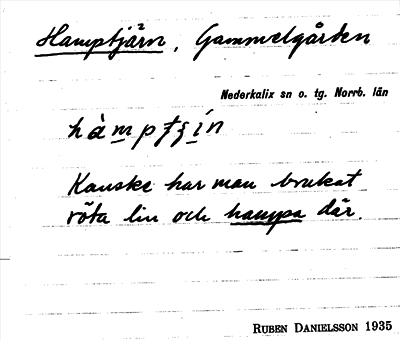 Hamptjärn, Gammelgården
Nederkalix sn o. tg. Norrb. län
Kanske har man brukat
röta lin och hampa där.
RUBEN DANIELSSON 1935